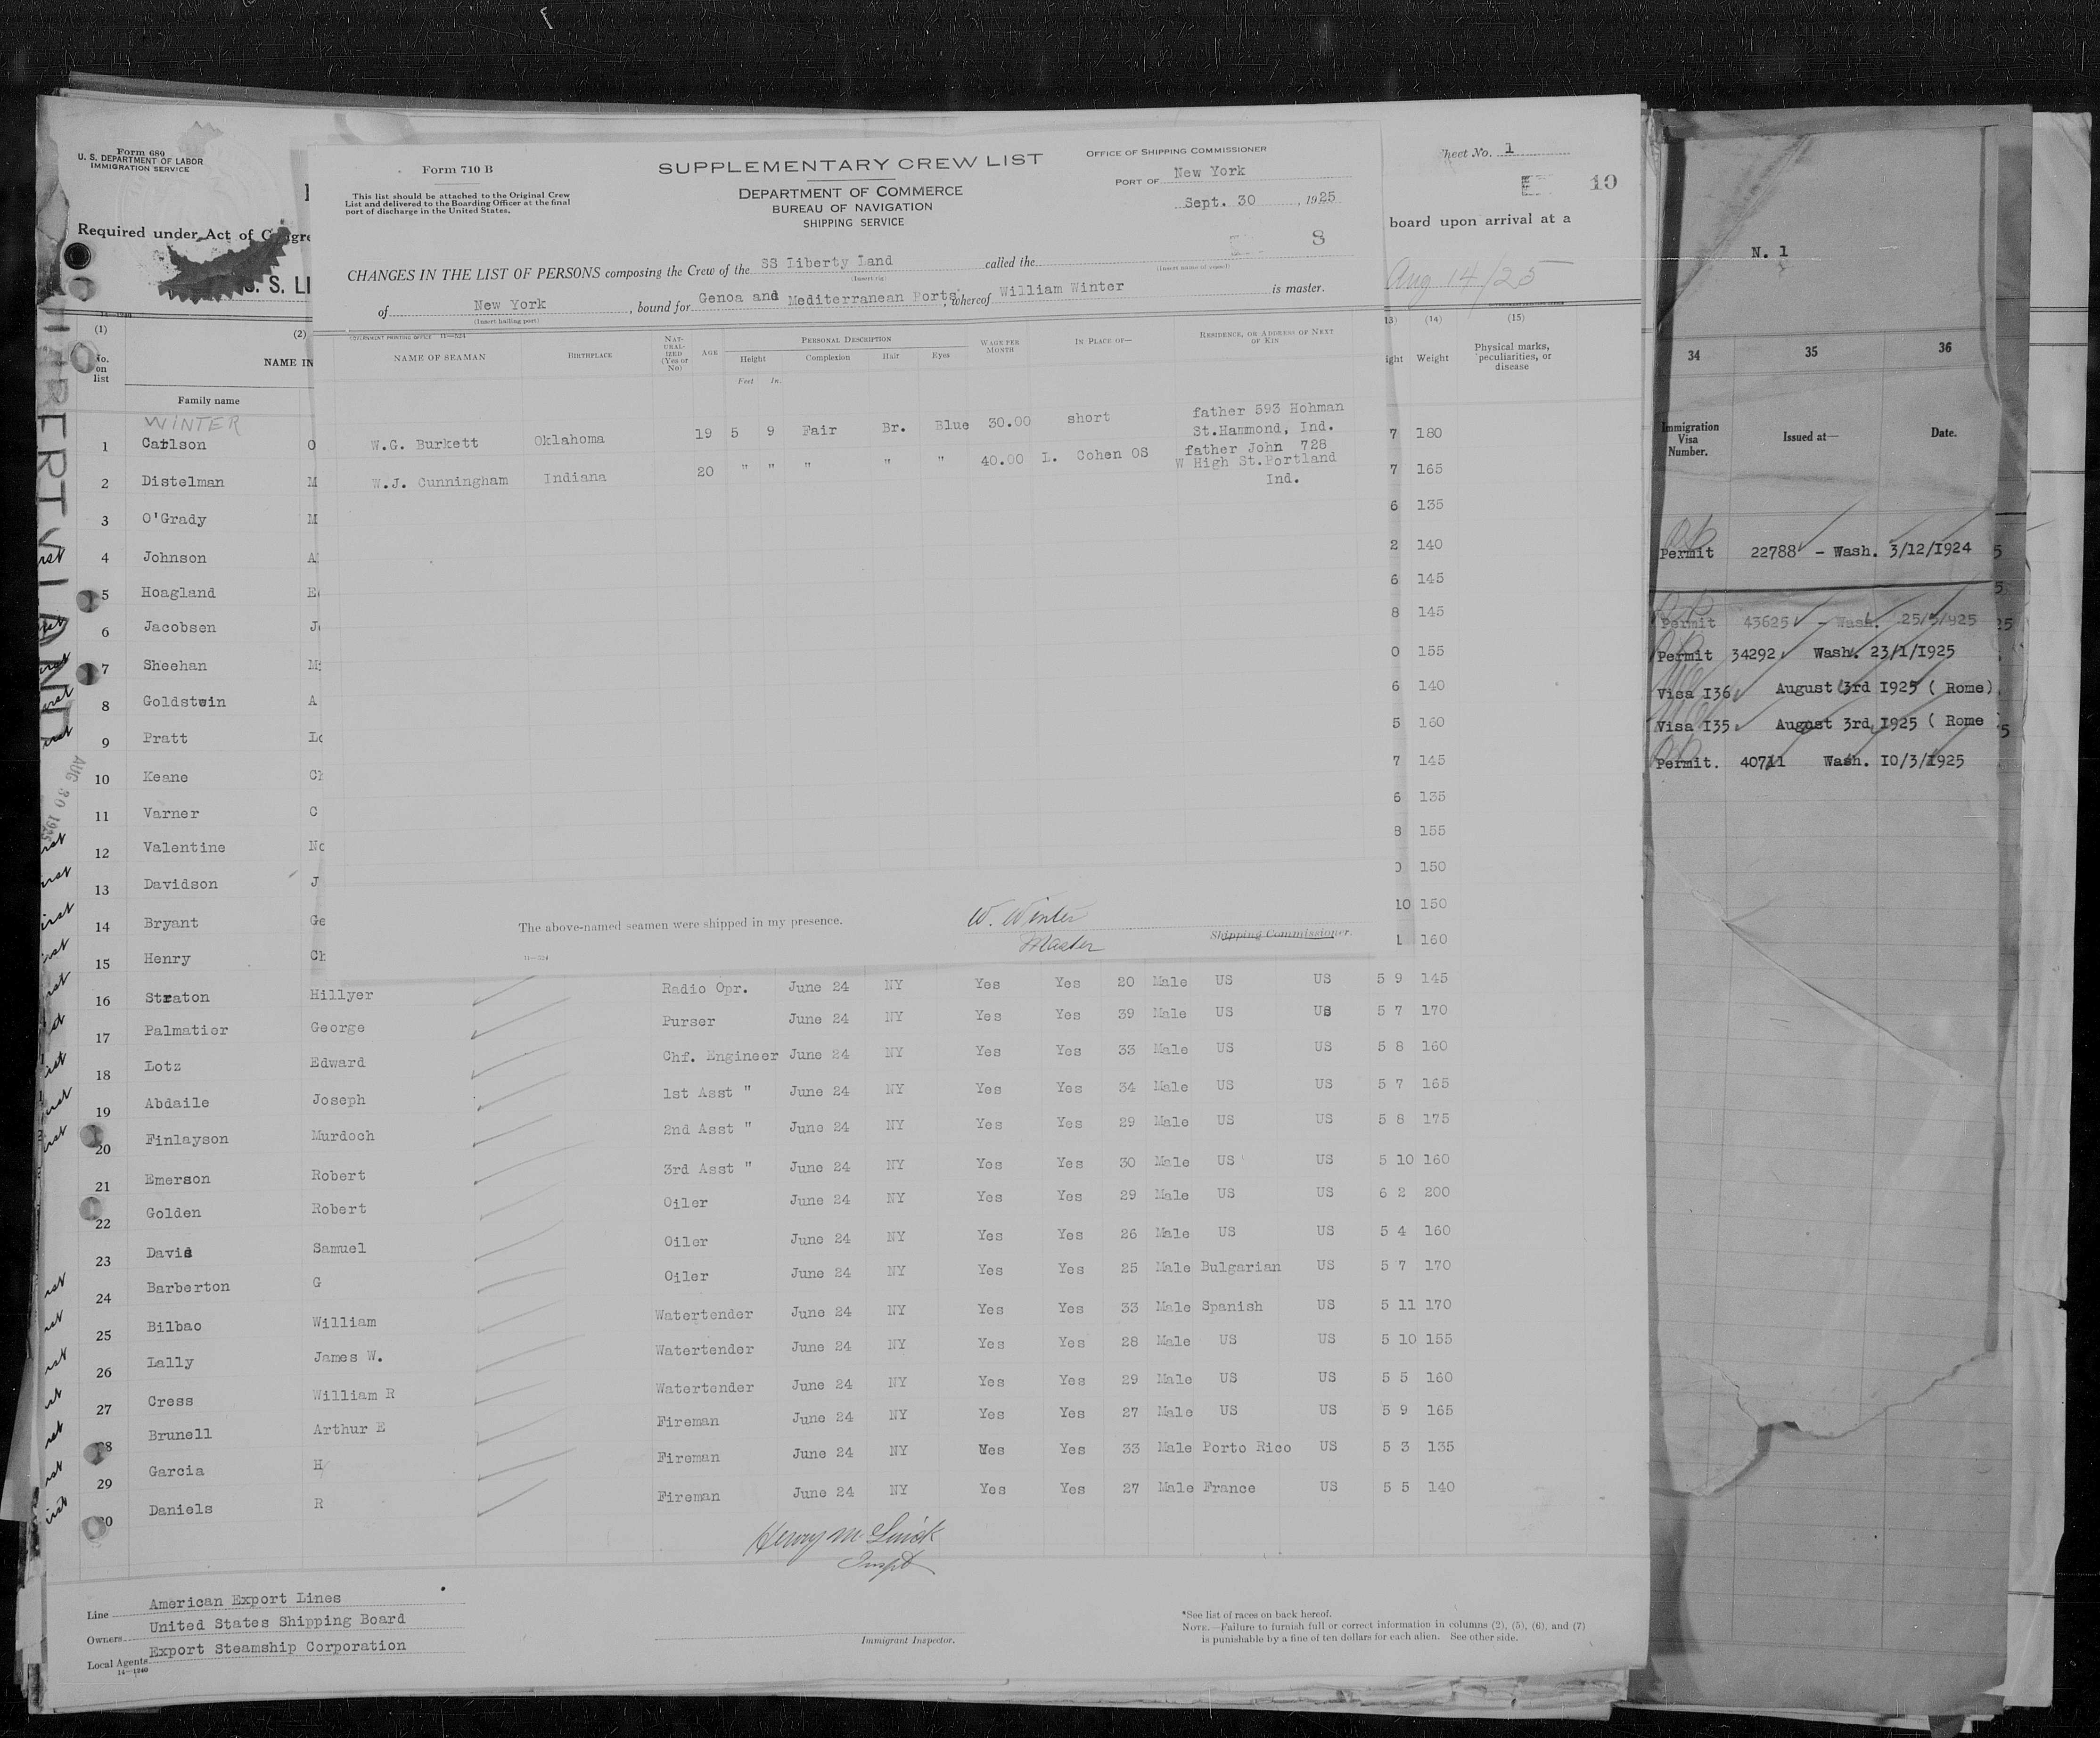 Form 689
U. S. DEPARTMENT OF LABOR
IMMIGRATION SERVICE
Required under Act of Congre
S. LI
(1)
(2)
No. on list
NAME IN
Family name
WINTER
LIBERTY LAND
AUG 30 1925
Form 710 B
This list should be attached to the Original Crew
List and delivered to the Boarding Officer at the final
port of discharge in the United States.
SUPPLEMENTARY CREW LIST
DEPARTMENT OF COMMERCE
BUREAU OF NAVIGATION
SHIPPING SERVICE
OFFICE OF SHIPPING COMMISSIONER
PORT OF New York
Sept. 30, 1925
8
CHANGES IN THE LIST OF PERSONS composing the Crew of the SS Liberty Land called the
(Insert rig) (Insert name of vessel)
of New York, bound for Genoa and Mediterranean Ports, whereof William Winter is master.
(Insert hailing port)
GOVERNMENT PRINTING OFFICE 11—524
NAME OF SEAMAN BIRTHPLACE NAT-URAL-IZED (Yes or No) AGE PERSONAL DESCRIPTION WAGE PER MONTH IN PLACE OF— RESIDENCE, OR ADDRESS OF NEXT OF KIN
Height Complexion Hair Eyes
Feet In.
W.G. Burkett Oklahoma 19 5 9 Fair Br. Blue 30.00 short father 593 Hohman
St.Hammond, Ind.
W.J. Cunningham Indiana 20 " " " " " 40.00 L. Cohen OS father John 728
W High St.Portland
Ind.
The above-named seamen were shipped in my presence.
W. Winter
Master
Shipping Commissioner.
11—524
Sheet No. 1
10
board upon arrival at a
Aug 14/25
13) (14) (15)
ight Weight Physical marks, peculiarities, or disease
1 Carlson O 7 180
2 Distelman M 7 165
3 O'Grady M 6 135
4 Johnson A 2 140
5 Hoagland E 6 145
6 Jacobsen J 8 145
7 Sheehan M 0 155
8 Goldstwin A 6 140
9 Pratt Lo 5 160
10 Keane Ch 7 145
11 Varner C 6 135
12 Valentine No 8 155
13 Davidson J 0 150
14 Bryant Ge 10 150
15 Henry Ch 1 160
16 Straton Hillyer Radio Opr. June 24 NY Yes Yes 20 Male US US 5 9 145
17 Palmatier George Purser June 24 NY Yes Yes 39 Male US US 5 7 170
18 Lotz Edward Chf. Engineer June 24 NY Yes Yes 33 Male US US 5 8 160
19 Abdaile Joseph 1st Asst " June 24 NY Yes Yes 34 Male US US 5 7 165
20 Finlayson Murdoch 2nd Asst " June 24 NY Yes Yes 29 Male US US 5 8 175
21 Emerson Robert 3rd Asst " June 24 NY Yes Yes 30 Male US US 5 10 160
22 Golden Robert Oiler June 24 NY Yes Yes 29 Male US US 6 2 200
23 David Samuel Oiler June 24 NY Yes Yes 26 Male US US 5 4 160
24 Barberton G Oiler June 24 NY Yes Yes 25 Male Bulgarian US 5 7 170
25 Bilbao William Watertender June 24 NY Yes Yes 33 Male Spanish US 5 11 170
26 Lally James W. Watertender June 24 NY Yes Yes 28 Male US US 5 10 155
27 Cress William R Watertender June 24 NY Yes Yes 29 Male US US 5 5 160
28 Brunell Arthur E Fireman June 24 NY Yes Yes 27 Male US US 5 9 165
29 Garcia H Fireman June 24 NY Yes Yes 33 Male Porto Rico US 5 3 135
30 Daniels R Fireman June 24 NY Yes Yes 27 Male France US 5 5 140
Inspt
Line American Export Lines
Owners United States Shipping Board
Local Agents Export Steamship Corporation
14—1240
Immigrant Inspector.
*See list of races on back hereof.
NOTE.—Failure to furnish full or correct information in columns (2), (5), (6), and (7)
is punishable by a fine of ten dollars for each alien. See other side.
N. 1
34 35 36
Immigration Visa Number. Issued at— Date.
Permit 22788 - Wash. 3/12/1924
Permit 43625 - Wash. 25/5/925
Permit 34292 Wash. 23/1/1925
Visa I36 August 3rd 1925 ( Rome)
Visa I35 August 3rd 1925 ( Rome
Permit. 40711 Wash. 10/3/1925